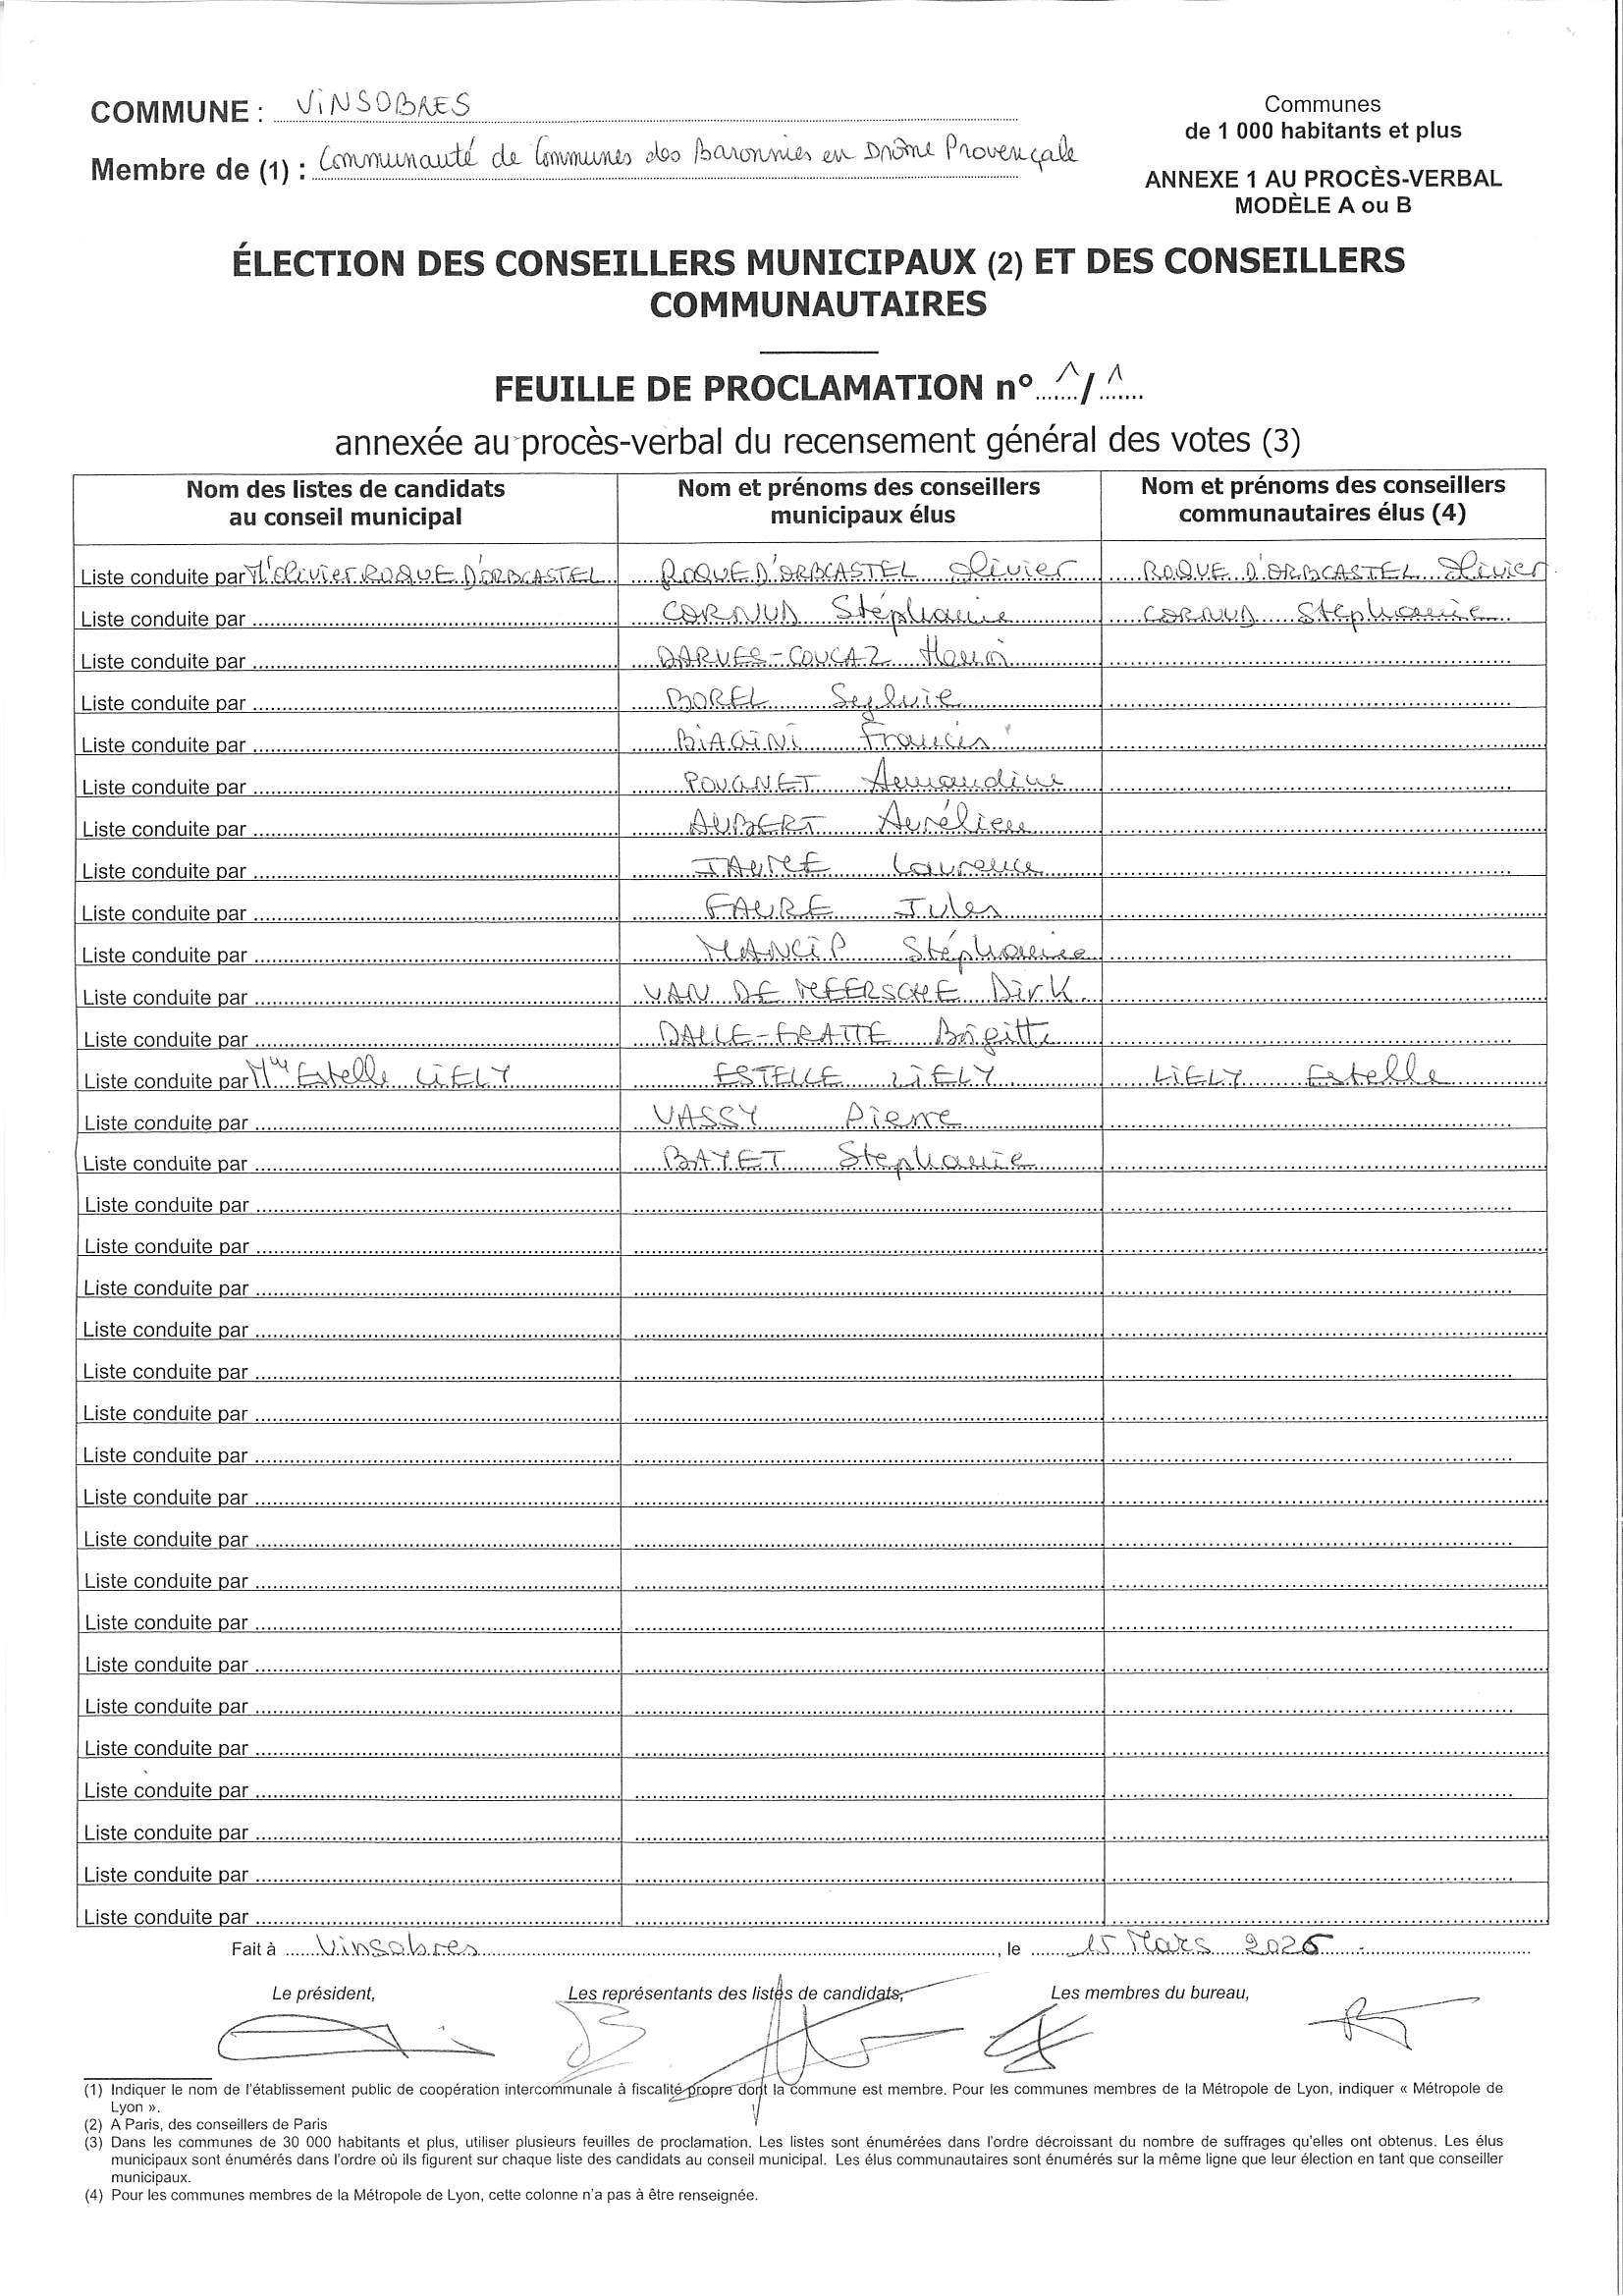 COMMUNE : VINSOBRES
Membre de (1) : Communauté de Communes des Baronnies en Drôme Provençale
Communes
de 1 000 habitants et plus
ANNEXE 1 AU PROCÈS-VERBAL
MODÈLE A ou B
ÉLECTION DES CONSEILLERS MUNICIPAUX (2) ET DES CONSEILLERS
COMMUNAUTAIRES
FEUILLE DE PROCLAMATION n° 1/1
annexée au procès-verbal du recensement général des votes (3)
Nom des listes de candidats
au conseil municipal
Nom et prénoms des conseillers
municipaux élus
Nom et prénoms des conseillers
communautaires élus (4)
Liste conduite par Mr Olivier ROQUE D'ORBCASTEL ROQUE D'ORBCASTEL Olivier ROQUE D'ORBCASTEL Olivier
Liste conduite par CORNUD Stéphanie CORNUD Stephanie
Liste conduite par DARVES-COUCAZ Henri
Liste conduite par BOREL Sylvie
Liste conduite par BIAGINI Francis
Liste conduite par POUGNET Amandine
Liste conduite par AUBERT Aurélien
Liste conduite par Laurence
Liste conduite par FAURE Jules
Liste conduite par MANCIP Stéphanie
Liste conduite par VAN DE MEERSCHE Dirk
Liste conduite par DALLE-FRATTE Brigitte
Liste conduite par Mme Estelle LIELY ESTELLE LIELY LIELY Estelle
Liste conduite par VASSY Pierre
Liste conduite par BAYET Stephanie
Liste conduite par
Liste conduite par
Liste conduite par
Liste conduite par
Liste conduite par
Liste conduite par
Liste conduite par
Liste conduite par
Liste conduite par
Liste conduite par
Liste conduite par
Liste conduite par
Liste conduite par
Liste conduite par
Liste conduite par
Liste conduite par
Liste conduite par
Liste conduite par
Fait à Vinsobres, le 15 Mars 2026
Le président,
Les représentants des listes de candidats,
Les membres du bureau,
(1) Indiquer le nom de l'établissement public de coopération intercommunale à fiscalité propre dont la commune est membre. Pour les communes membres de la Métropole de Lyon, indiquer « Métropole de
Lyon ».
(2) A Paris, des conseillers de Paris
(3) Dans les communes de 30 000 habitants et plus, utiliser plusieurs feuilles de proclamation. Les listes sont énumérées dans l'ordre décroissant du nombre de suffrages qu'elles ont obtenus. Les élus
municipaux sont énumérés dans l'ordre où ils figurent sur chaque liste des candidats au conseil municipal. Les élus communautaires sont énumérés sur la même ligne que leur élection en tant que conseiller
municipaux.
(4) Pour les communes membres de la Métropole de Lyon, cette colonne n'a pas à être renseignée.